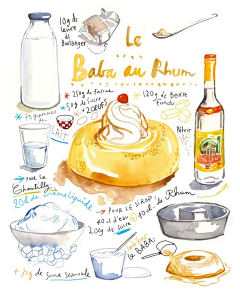 10g de
levure de
Boulanger
Le
Baba au Rhum
* 250g de farine
* 50g de sucre
+ 2 OEUFS
* 120g de Beurre
fondu
Pétrir
LAIT
→ POUR LA
Chantilly
20cl de crème liquide
→ POUR LE SIROP
40cl d'eau
200g de sucre
+ 10cl de Rhum
imbiber
le BABA
+ 30g de sucre semoule